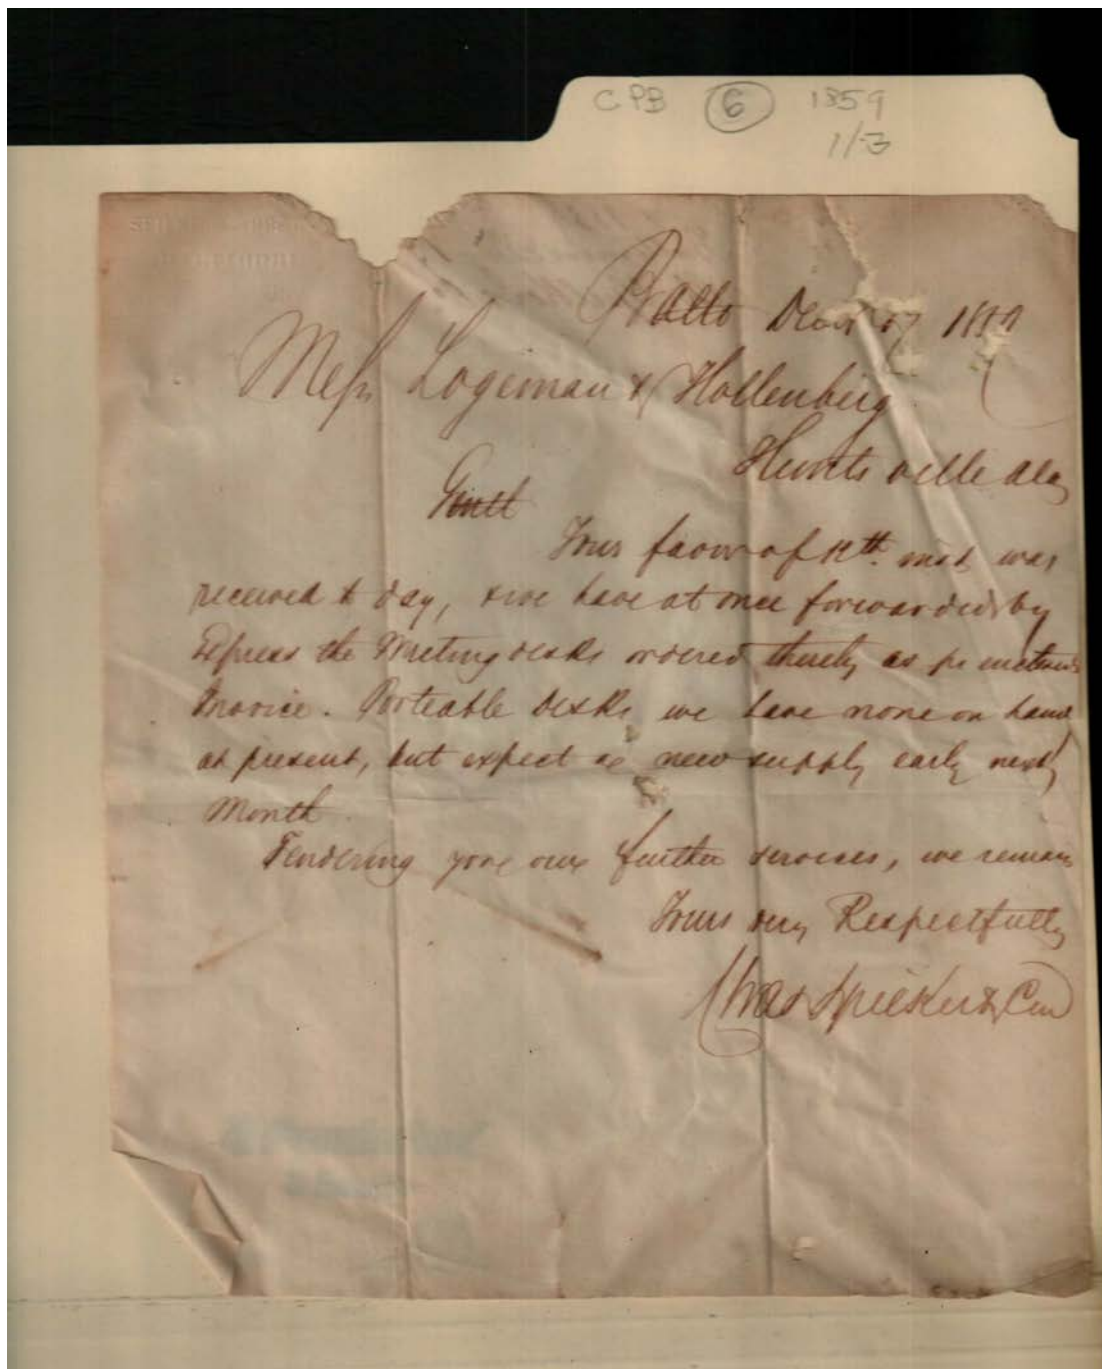 CPB 6 1859
1/3
Balto Decr 17 1859
Mess Logeman & Hollenberg
Huntsville Ala
Gentl
Yours favor of 12th inst was
received to day, & we have at once forwarded by
Express the Writing desks ordered thereby as pr
Invoice. Porteable Desks we have none on hand
at present, but expect a new supply early next
Month
Tendering you our further services, we remain
Yours very Respectfully
Chas Spilker & Co